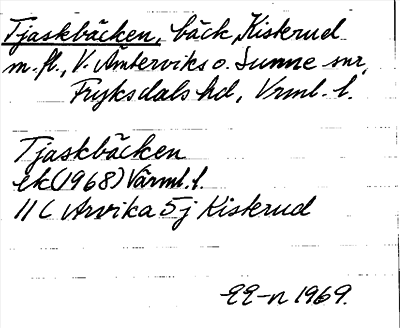 Tjaskbäcken, bäck, Kiskerud
m. fl., V. Ämterviks o. Sunne snr,
Fryksdals hd, Vrml. l.
Tjaskbäcken
ek (1968) Värml. l.
11 C Arvika 5j Kiskerud
1969.